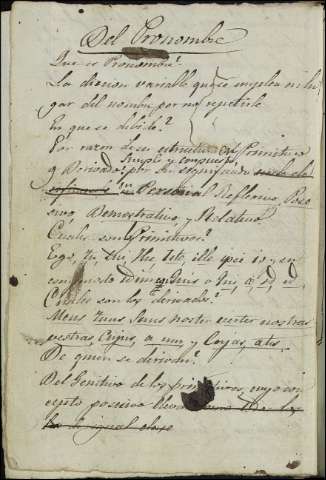 Del Pronombre
Que es Pronombre?
La diccion variable que se emplea en lu
gar del nombre por no repetirle
En que se debide?
Por razon de su estructura en Primitivo
y Derivado? por su significado
Simple y compuesto
en Personal Reflexivo, Pose
sivo, Demostrativo, y Relativo
Cuales son Primitivos?
Ego, tu, sui, Hic, Iste, ille, ipse is, y su
compuesto Idem, quis o qui, a, d, d
Cuales son los derivados?
Meus Tuus Suus noster vester nostras
vestras, Cujus, a, um y Cujas, atis
De quien se derivan?
Del Genitivo de los primitivos, cuyo con
cepto posesivo
de igual clase